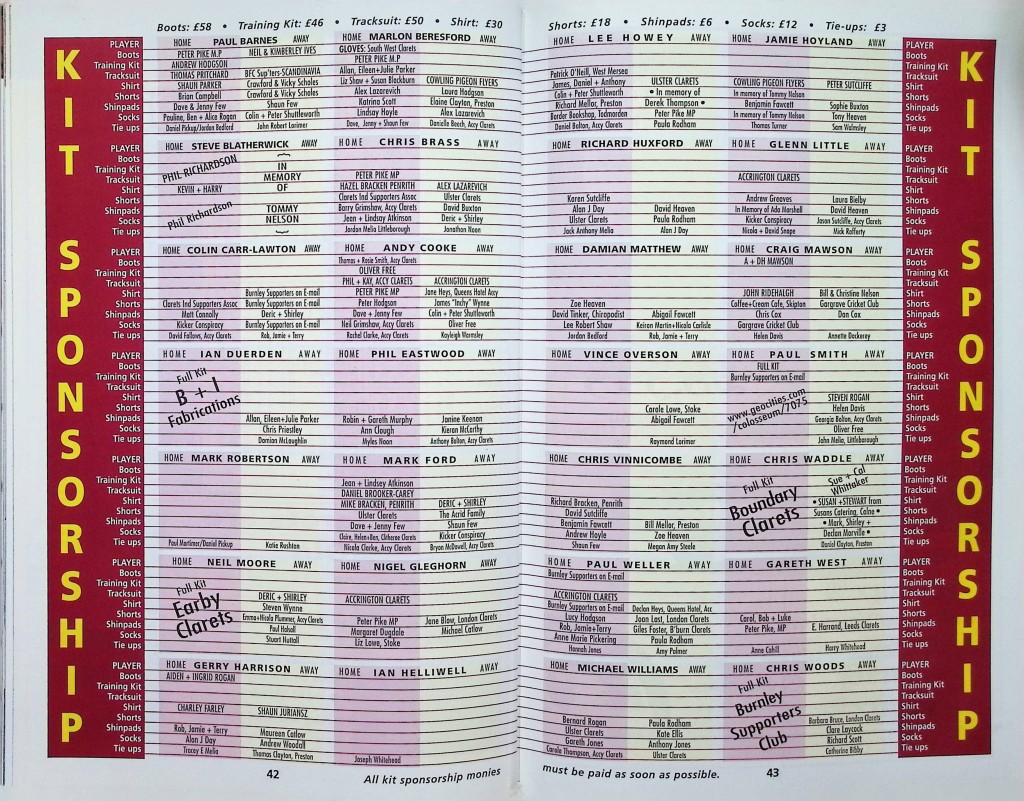 Boots: £58 • Training Kit: £46 • Tracksuit: £50 • Shirt: £30
KIT SPONSORSHIP
PLAYER
Boots
Training Kit
Tracksuit
Shirt
Shorts
Shinpads
Socks
Tie ups
HOME PAUL BARNES AWAY
PETER PIKE M.P NEIL & KIMBERLEY IVES
ANDREW HODGSON
THOMAS PRITCHARD BFC Sup'ters-SCANDINAVIA
SHAUN PARKER Crawford & Vicky Scholes
Brian Campbell Crawford & Vicky Scholes
Dave & Jenny Few Shaun Few
Pauline, Ben + Alice Rogan Colin + Peter Shuttleworth
Daniel Pickup/Jordan Bedford John Robert Lorimer
HOME MARLON BERESFORD AWAY
GLOVES: South West Clarets
PETER PIKE M.P
Allan, Eileen+Julie Parker
Liz Shaw + Susan Blackburn COWLING PIGEON FLYERS
Alex Lazarevich Laura Hodgson
Katrina Scott Elaine Clayton, Preston
Lindsay Hoyle Alex Lazarevich
Dave, Jenny + Shaun Few Danielle Beech, Accy Clarets
PLAYER
Boots
Training Kit
Tracksuit
Shirt
Shorts
Shinpads
Socks
Tie ups
HOME STEVE BLATHERWICK AWAY
PHIL RICHARDSON
KEVIN + HARRY
Phil Richardson
IN
MEMORY
OF
TOMMY
NELSON
HOME CHRIS BRASS AWAY
PETER PIKE MP
HAZEL BRACKEN PENRITH ALEX LAZAREVICH
Clarets Ind Supporters Assoc Ulster Clarets
Barry Grimshaw, Accy Clarets David Buxton
Jean + Lindsay Atkinson Deric + Shirley
Jordan Melia Littleborough Jonathan Noon
PLAYER
Boots
Training Kit
Tracksuit
Shirt
Shorts
Shinpads
Socks
Tie ups
HOME COLIN CARR-LAWTON AWAY
Burnley Supporters on E-mail
Clarets Ind Supporters Assoc Burnley Supporters on E-mail
Matt Connolly Deric + Shirley
Kicker Conspiracy Burnley Supporters on E-mail
David Fallows, Accy Clarets Rob, Jamie + Terry
HOME ANDY COOKE AWAY
Thomas + Rosie Smith, Accy Clarets
OLIVER FREE
PHIL + KAY, ACCY CLARETS ACCRINGTON CLARETS
PETER PIKE MP Jane Heys, Queens Hotel Accy
Peter Hodgson James "Inchy" Wynne
Dave + Jenny Few Colin + Peter Shuttleworth
Neil Grimshaw, Accy Clarets Oliver Free
Rachel Clarke, Accy Clarets Kayleigh Warmsley
PLAYER
Boots
Training Kit
Tracksuit
Shirt
Shorts
Shinpads
Socks
Tie ups
HOME IAN DUERDEN AWAY
Full Kit
B + I
Fabrications
Allan, Eileen+Julie Parker
Chris Priestley
Damian McLoughlin
HOME PHIL EASTWOOD AWAY
Robin + Gareth Murphy Janine Keenan
Ann Clough Kieran McCarthy
Myles Noon Anthony Bolton, Accy Clarets
PLAYER
Boots
Training Kit
Tracksuit
Shirt
Shorts
Shinpads
Socks
Tie ups
HOME MARK ROBERTSON AWAY
Paul Mortimer/Daniel Pickup Katie Rushton
HOME MARK FORD AWAY
Jean + Lindsey Atkinson
DANIEL BROOKER-CAREY
MIKE BRACKEN, PENRITH DERIC + SHIRLEY
Ulster Clarets The Acrid Family
Dave + Jenny Few Shaun Few
Claire, Helen+Ben, Clitheroe Clarets Kicker Conspiracy
Nicola Clarke, Accy Clarets Bryan McDowell, Accy Clarets
PLAYER
Boots
Training Kit
Tracksuit
Shirt
Shorts
Shinpads
Socks
Tie ups
HOME NEIL MOORE AWAY
Full-Kit
Earby
Clarets
DERIC + SHIRLEY
Steven Wynne
Emma+Nicola Plummer, Accy Clarets
Paul Hahall
Stuart Nuttall
HOME NIGEL GLEGHORN AWAY
ACCRINGTON CLARETS
Peter Pike MP Jane Blow, London Clarets
Margaret Dugdale Michael Catlow
Liz Lowe, Stoke
PLAYER
Boots
Training Kit
Tracksuit
Shirt
Shorts
Shinpads
Socks
Tie ups
HOME GERRY HARRISON AWAY
AIDEN + INGRID ROGAN
CHARLEY FARLEY SHAUN JURIANSZ
Rob, Jamie + Terry Maureen Catlow
Alan J Day Andrew Woodall
Tracey E Melia Thomas Clayton, Preston
HOME IAN HELLIWELL AWAY
Joseph Whitehead
42
All kit sponsorship monies
Shorts: £18 • Shinpads: £6 • Socks: £12 • Tie-ups: £3
HOME LEE HOWEY AWAY
Patrick O'Neill, West Mersea
James, Daniel + Anthony ULSTER CLARETS
Colin + Peter Shuttleworth • In memory of
Richard Mellor, Preston Derek Thompson •
Border Bookshop, Todmorden Peter Pike MP
Daniel Bolton, Accy Clarets Paula Rodham
HOME JAMIE HOYLAND AWAY
COWLING PIGEON FLYERS PETER SUTCLIFFE
In memory of Tommy Nelson
Benjamin Fawcett Sophie Buxton
In memory of Tommy Nelson Tony Heaven
Thomas Turner Sam Walmsley
PLAYER
Boots
Training Kit
Tracksuit
Shirt
Shorts
Shinpads
Socks
Tie ups
HOME RICHARD HUXFORD AWAY
Karen Sutcliffe
Alan J Day David Heaven
Ulster Clarets Paula Rodham
Jack Anthony Melia Alan J Day
HOME GLENN LITTLE AWAY
ACCRINGTON CLARETS
Andrew Greaves Laura Bielby
In Memory of Ada Marshall David Heaven
Kicker Conspiracy Jason Sutcliffe, Accy Clarets
Nicola + David Snape Mick Rafferty
PLAYER
Boots
Training Kit
Tracksuit
Shirt
Shorts
Shinpads
Socks
Tie ups
HOME DAMIAN MATTHEW AWAY
Zoe Heaven
David Tinker, Chiropodist Abigail Fawcett
Lee Robert Shaw Keiron Martin+Nicola Carlisle
Jordan Bedford Rob, Jamie + Terry
HOME CRAIG MAWSON AWAY
A + DH MAWSON
JOHN RIDEHALGH Bill & Christine Nelson
Coffee+Cream Cafe, Skipton Gargrave Cricket Club
Chris Cox Dan Cox
Gargrave Cricket Club
Helen Davis Annette Dockerey
PLAYER
Boots
Training Kit
Tracksuit
Shirt
Shorts
Shinpads
Socks
Tie ups
HOME VINCE OVERSON AWAY
Carole Lowe, Stoke
Abigail Fawcett
Raymond Lorimer
HOME PAUL SMITH AWAY
FULL KIT
Burnley Supporters on E-mail
www.geocities.com
/colosseum/7075
STEVEN ROGAN
Helen Davis
Georgia Bolton, Accy Clarets
Oliver Free
John Melia, Littleborough
PLAYER
Boots
Training Kit
Tracksuit
Shirt
Shorts
Shinpads
Socks
Tie ups
HOME CHRIS VINNICOMBE AWAY
Richard Bracken, Penrith
David Sutcliffe
Benjamin Fawcett Bill Mellor, Preston
Andrew Hoyle Zoe Heaven
Shaun Few Megan Amy Steele
HOME CHRIS WADDLE AWAY
Full Kit
Boundary
Clarets
Sue + Cal
Whittaker
• SUSAN +STEWART from
Susans Catering, Colne •
• Mark, Shirley +
Declan Morville •
Daniel Clayton, Preston
PLAYER
Boots
Training Kit
Tracksuit
Shirt
Shorts
Shinpads
Socks
Tie ups
HOME PAUL WELLER AWAY
Burnley Supporters on E-mail
ACCRINGTON CLARETS
Burnley Supporters on E-mail Declan Heys, Queens Hotel, Acc
Lucy Hodgson Joan Last, London Clarets
Rob, Jamie+Terry Giles Foster, B'burn Clarets
Anne Marie Pickering Paula Rodham
Hannah Jones Amy Palmer
HOME GARETH WEST AWAY
Carol, Bob + Luke
Peter Pike, MP E. Harrand, Leeds Clarets
Anne Cahill Harry Whitehead
PLAYER
Boots
Training Kit
Tracksuit
Shirt
Shorts
Shinpads
Socks
Tie ups
HOME MICHAEL WILLIAMS AWAY
Bernard Rogan Paula Rodham
Ulster Clarets Kate Ellis
Gareth Jones Anthony Jones
Carole Thompson, Accy Clarets Ulster Clarets
HOME CHRIS WOODS AWAY
Full-Kit
Burnley
Supporters
Club
Barbara Bruce, London Clarets
Clare Laycock
Richard Scott
Catherine Bibby
PLAYER
Boots
Training Kit
Tracksuit
Shirt
Shorts
Shinpads
Socks
Tie ups
KIT SPONSORSHIP
must be paid as soon as possible.
43